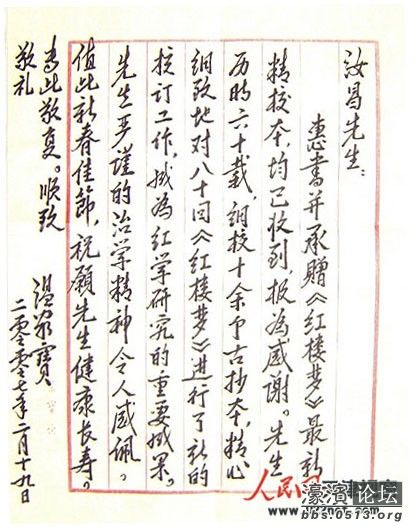 汝昌先生:
惠书并承赠《红楼梦》最新
精校本,均已收到,极为感谢。先生
历时六十载,细校十余部古抄本,精心
细致地对八十回《红楼梦》进行了新的
校订工作,成为红学研究的重要成果。
先生严谨的治学精神令人感佩。
值此新春佳节,祝愿先生健康长寿。
专此敬复。顺致
敬礼
温家宝
二零零七年二月十九日
人民
濠滨论坛
bbs.0513.org